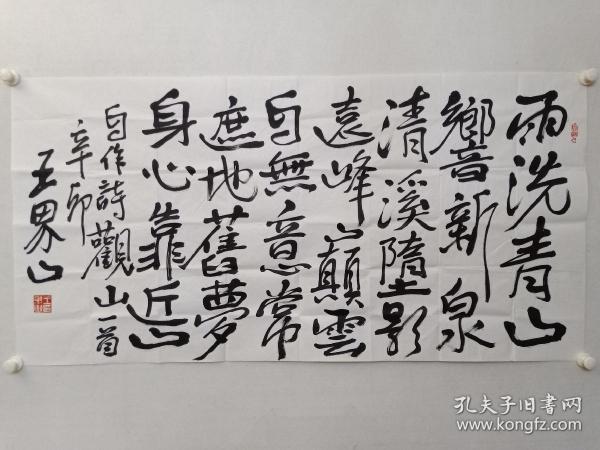 雨洗青山
響新泉
清溪墮影
遠峰巔雲
自無意常
遮地舊夢
身心靠近山
自作詩觀山一首
辛卯
王界山
孔夫子旧书网
www.kongfz.com